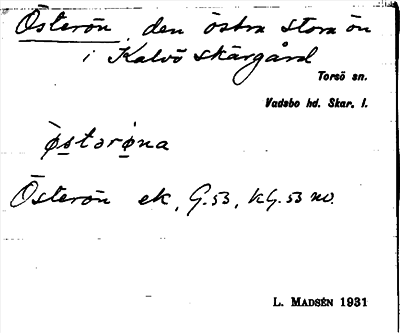 Österön, den östra stora ön
i Kalvö skärgård
Torsö sn.
Vadsbo hd. Skar. l.
ø̀stərø̀na
Österön ek, G.53, KG.53 no.
L. MADSÉN 1931